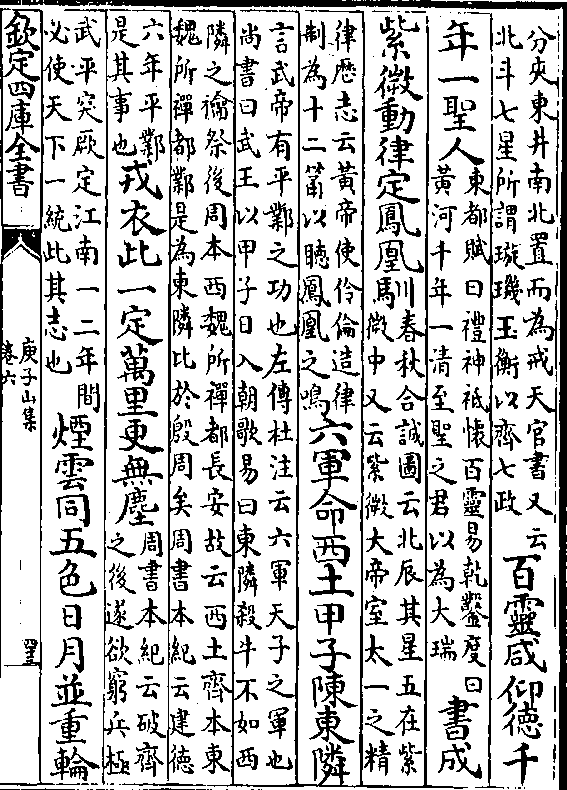 分夾東井南北置而為戒天官書又云
北斗七星所謂璇璣玉衡以齊七政
百靈咸仰德千
年一聖人
東都賦曰禮神祗懷百靈易乾鑿度曰
黃河千年一清至聖之君以為大瑞
書成
紫微動律定鳳凰馴
春秋合誠圖云北辰其星五在紫
微中又云紫微大帝室太一之精
律歷志云黃帝使伶倫造律
制為十二筩以聽鳳凰之鳴
六軍命西土甲子陳東隣
言武帝有平鄴之功也左傳杜注云六軍天子之軍也
尚書曰武王以甲子日入朝歌易曰東隣殺牛不如西
隣之禴祭後周本西魏所禪都長安故云西土齊本東
魏所禪都鄴是為東隣比於殷周矣周書本紀云建德
六年平鄴
是其事也
戎衣此一定萬里更無塵
周書本紀云破齊
之後遂欲窮兵極
武平突厥定江南一二年間
必使天下一統此其志也
煙雲同五色日月並重輪
欽定四庫全書
庾子山集
卷六